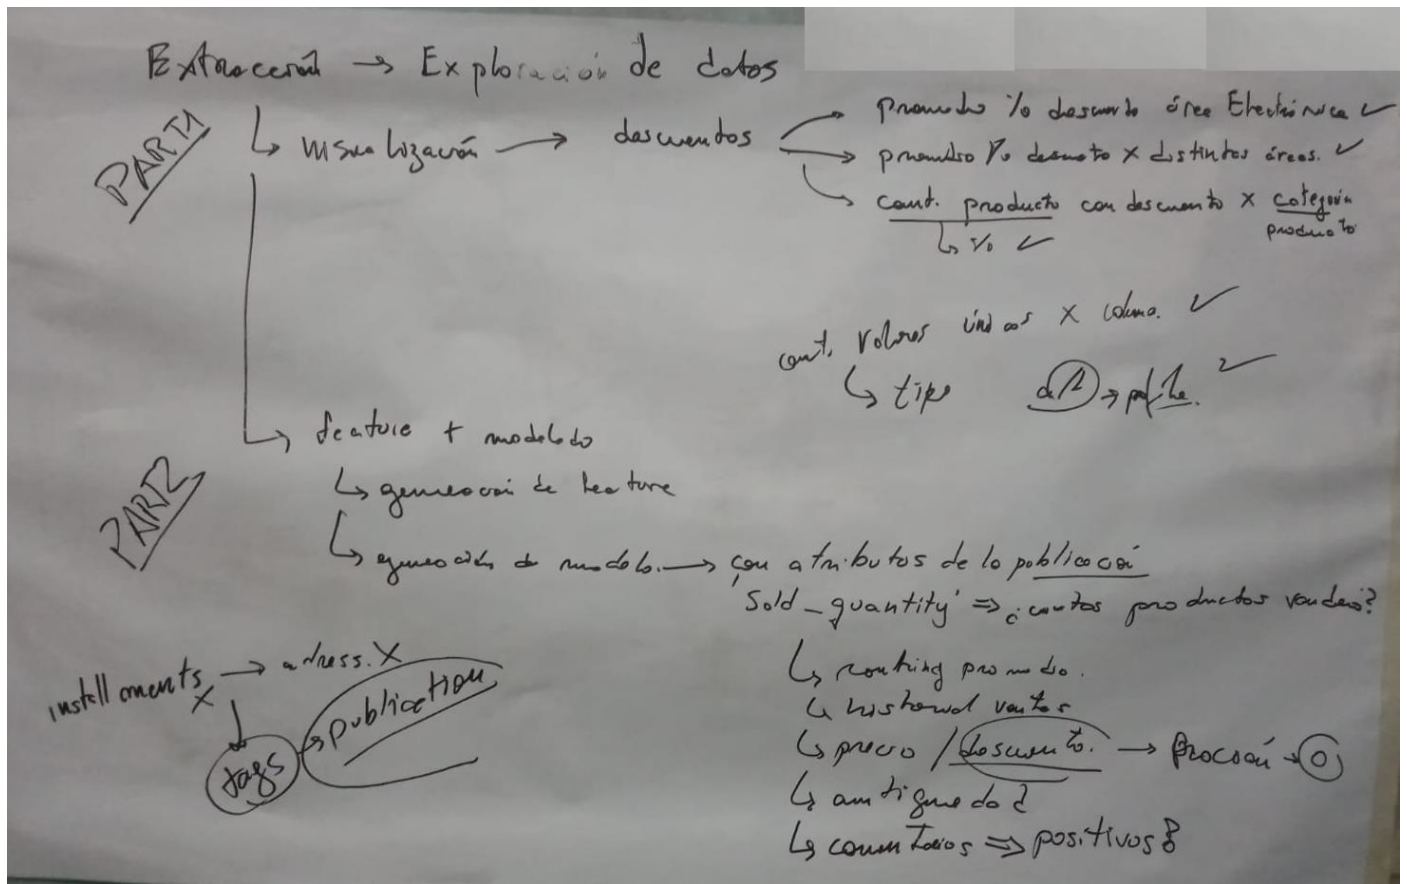 Extracción → Exploración de datos
PART1
↳ visualización → descuentos
→ promedio % descuento área Electrónica ✓
→ promedio % descuento x distintas áreas. ✓
→ cant. producto con descuento x categoría
producto
↳ % ✓
cant. valores únicos x columna. ✓
↳ tipo
↳ feature + modelado
PART2
↳ generación de feature
↳ generación de modelo. → con atributos de la publicación
'Sold_quantity' ⇒ ¿cuantos productos vendero?
↳ promedio.
↳ historial ventas
↳ precio / descuento. → → 0
↳ antiguedad
↳ comentarios ⇒ positivos?
installments X → adress. X
↓
tags → publication